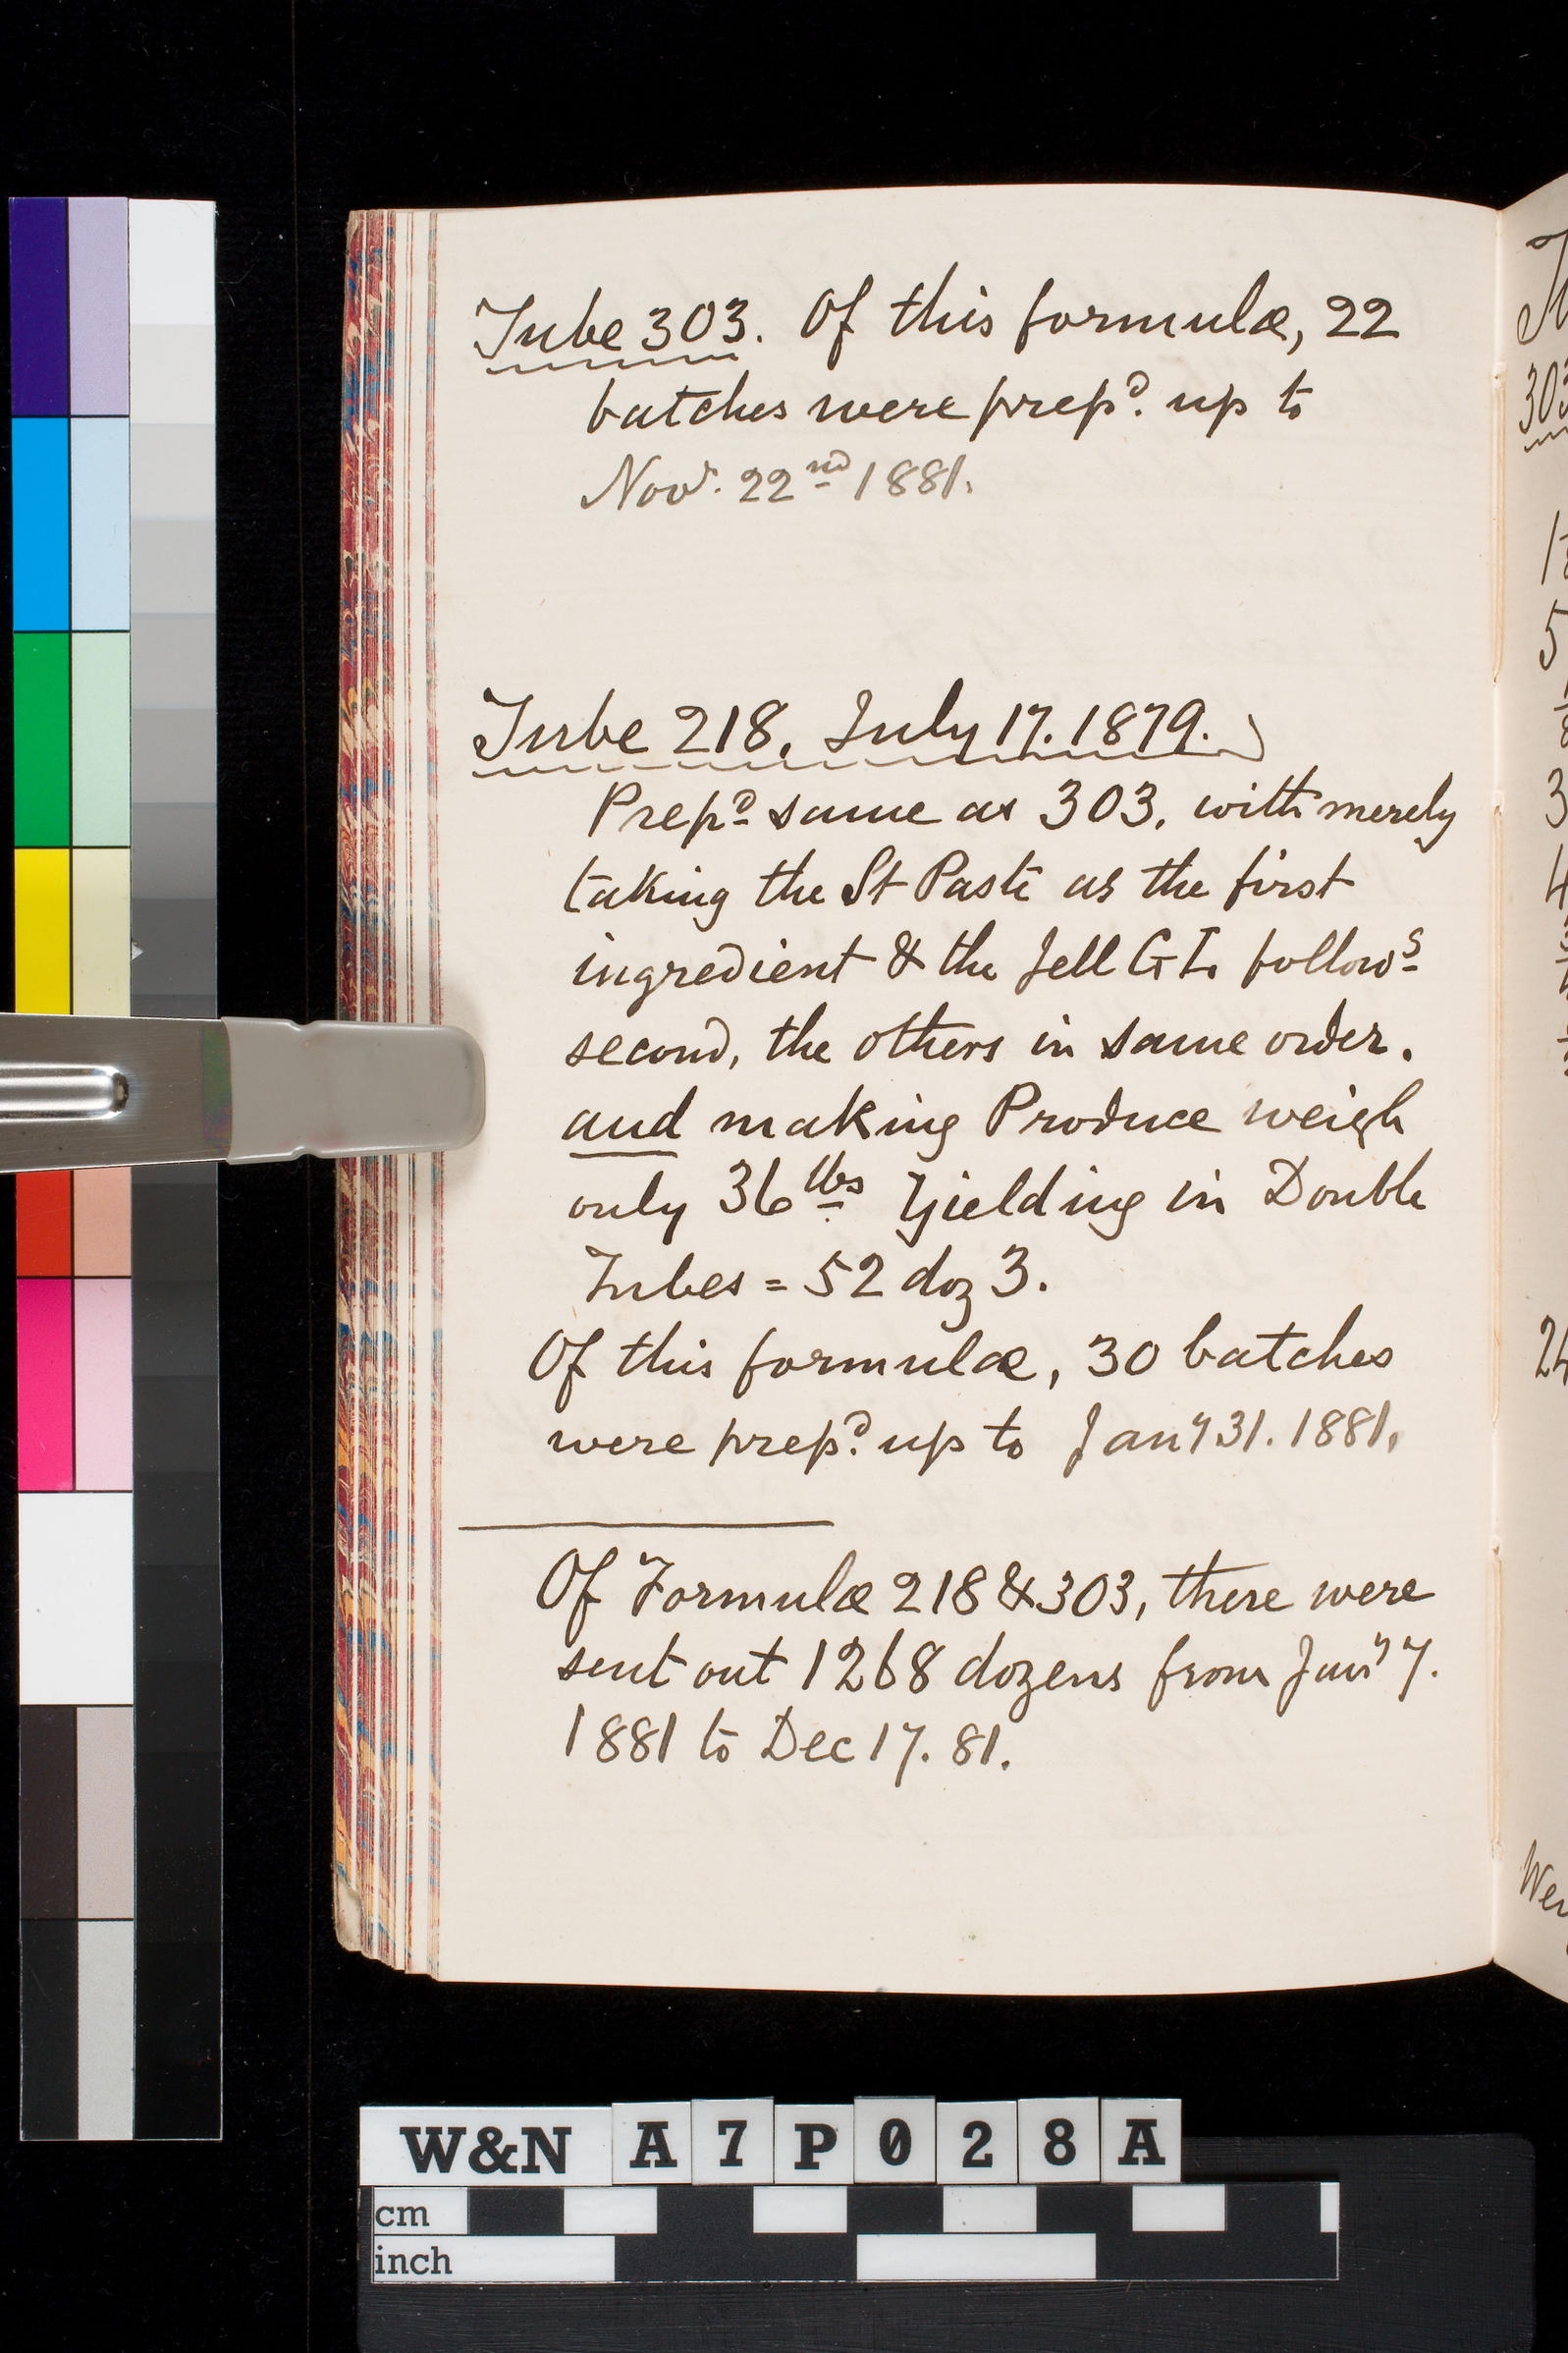 Tube 303. Of this formulæ, 22
batches were prep.d up to
Novr. 22nd 1881.
Tube 218. July 17. 1879.
Prepd same as 303. with merely
taking the St Paste as the first
ingredient & the Jell G I. follows
second, the others in same order.
and making Produce weigh
only 36 lbs Yielding in Double
Tubes = 52 doz 3.
Of this formulæ, 30 batches
were prep.d up to Jany 31. 1881.
Of Formulæ 218 & 303, there were
sent out 1268 dozens from Jany 7.
1881 to Dec 17. 81.
303
5
3
4
24
W&N A7P028A
cm
inch